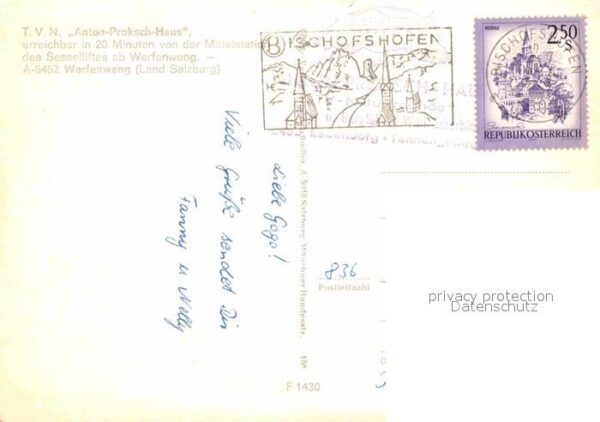 T. V. N. „Anton-Proksch-Haus",
erreichbar in 20 Minuten von der Mittelstation
des Sesselliftes ab Werfenweng. —
A-5452 Werfenweng (Land Salzburg)
BISCHOFSHOFEN
BISCHOFSHOFEN
MURAU
2.50
S
REPUBLIK ÖSTERREICH
Liebe Gogo!
Viele Grüße sendet Dir
Fanny u Nelly
A 5018 Salzburg, Münchner Bundesstr. 156
836
Postleitzahl
F 1430
privacy protection
Datenschutz